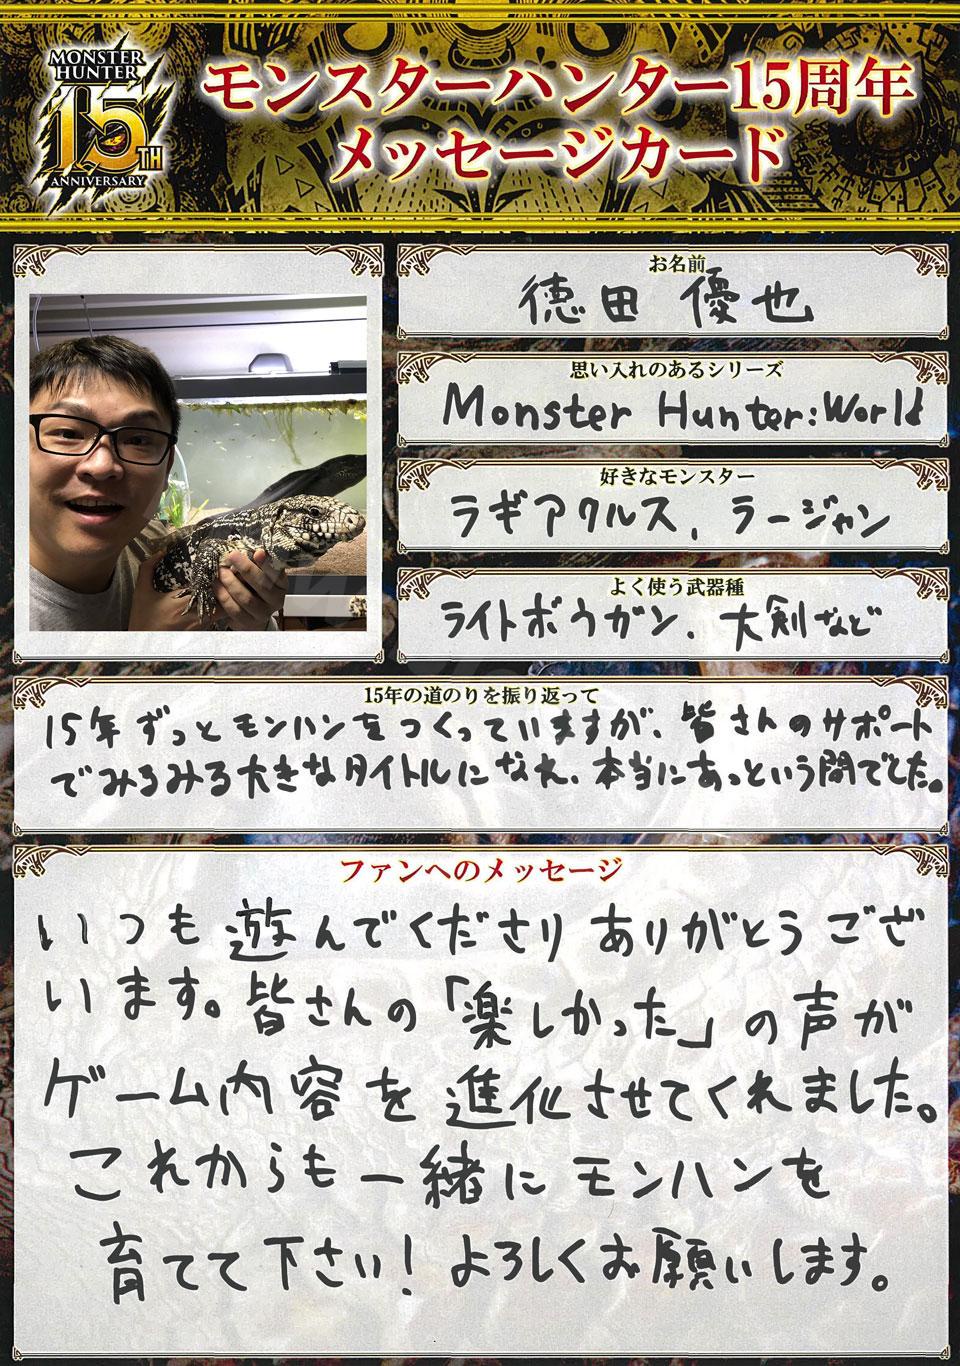 MONSTER
HUNTER
15TH
ANNIVERSARY
モンスターハンター15周年
メッセージカード
お名前
徳田 優也
思い入れのあるシリーズ
Monster Hunter:World
好きなモンスター
ラギアクルス、ラージャン
よく使う武器種
ライトボウガン、大剣など
15年の道のりを振り返って
15年ずっとモンハンをつくっていますが、皆さんのサポート
でみるみる大きなタイトルになれ、本当にあっという間でした。
ファンへのメッセージ
いつも遊んでくださりありがとうござ
います。皆さんの「楽しかった」の声が
ゲーム内容を進化させてくれました。
これからも一緒にモンハンを
育てて下さい！よろしくお願いします。